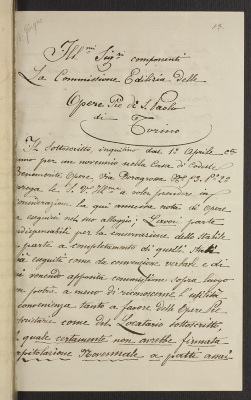 Ill.mi Sig.ri componenti
La Commissione Edilizia delle
Opere Pie di S. Paolo
di
Torino
Il Sottoscritto, inquilino dal 1° Aprile
per un novennio nella Casa di
Opere, Via
prega le S. V. Ill.me a voler prendere in
considerazione la qui annessa nota di Opere
eseguite nel suo alloggio; Lavori parte
indispensabili per la conservazione dello Stabile
e parte a completamento di quelli
già eseguiti come da convenzione verbale e di
cui venendo apposita commissione sopra luogo
non potrà a meno di riconoscerne l'utilità
e convenienza tanto a favore delle Opere Pie
come del Locatario sottoscritto,
il quale certamente non avrebbe firmata
capitolazione Novennale a patti assai